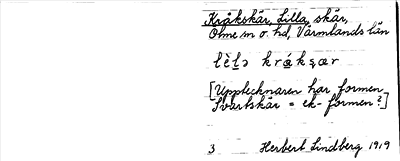 Kråkskär, Lilla, skär,
Ölme sn o. hd, Värmlands län
lèlə krákʂær
[Upptecknaren har formen
Svartskär = ek-formen?]
3 Herbert Lindberg 1919